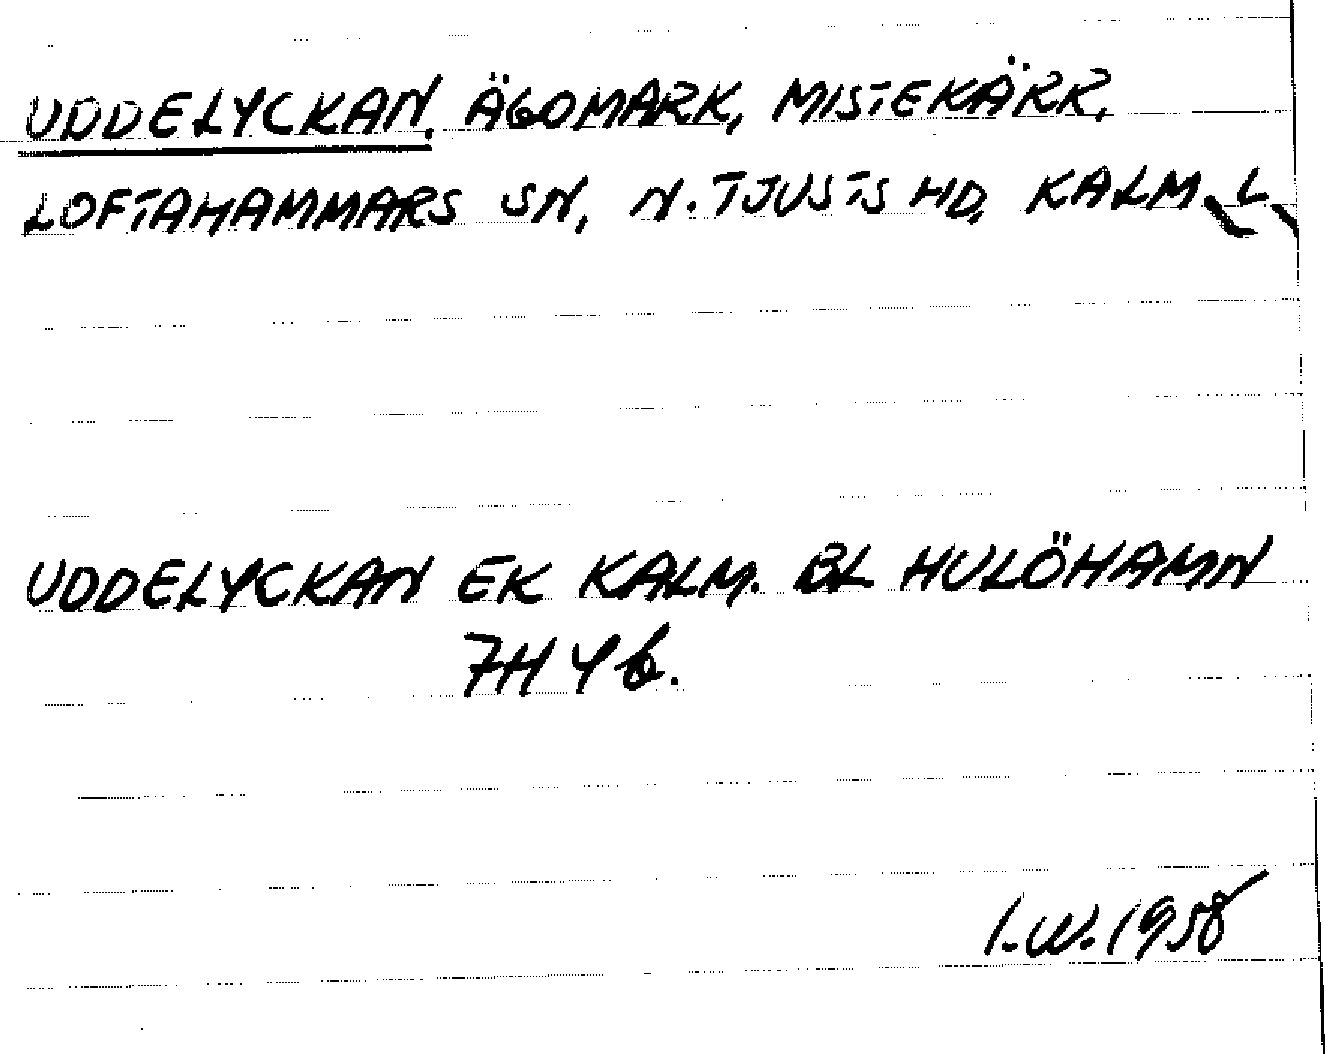 UDDELYCKAN. ÄGOMARK, MISTEKÄRR,
LOFTAHAMMARS SN, N. TJUSTS HD, KALM. L.
UDDELYCKAN EK KALM. BL HULÖHAMN
7H4b.
I.W. 1958